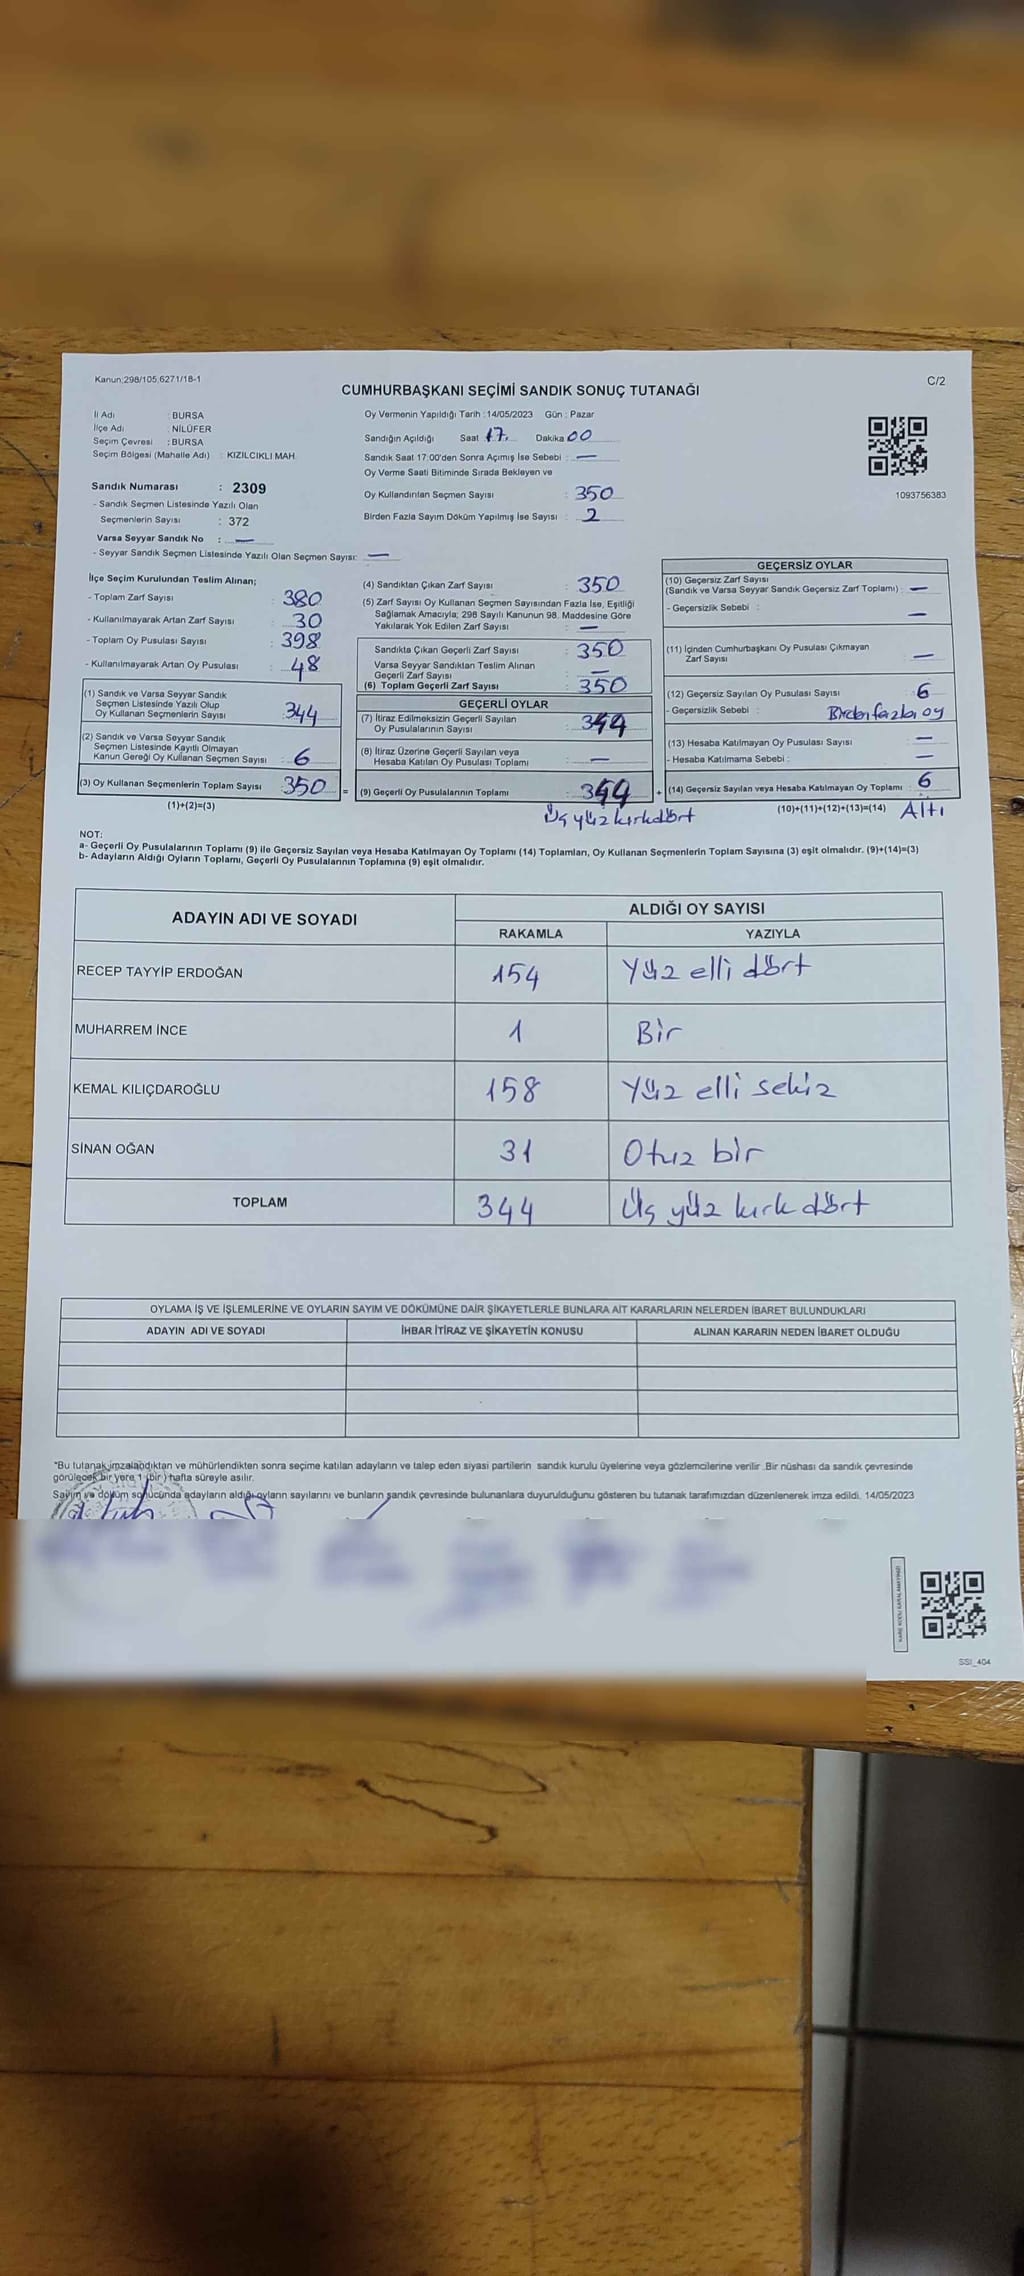 Kanun:298/105,6271/18-1
C/2
CUMHURBAŞKANI SEÇİMİ SANDIK SONUÇ TUTANAĞI
İl Adı : BURSA
İlçe Adı : NİLÜFER
Seçim Çevresi : BURSA
Seçim Bölgesi (Mahalle Adı) : KIZILCIKLI MAH.
Sandık Numarası : 2309
- Sandık Seçmen Listesinde Yazılı Olan
Seçmenlerin Sayısı : 372
Varsa Seyyar Sandık No : —
- Seyyar Sandık Seçmen Listesinde Yazılı Olan Seçmen Sayısı: —
Oy Vermenin Yapıldığı Tarih : 14/05/2023 Gün : Pazar
Sandığın Açıldığı Saat 17. Dakika 00
Sandık Saat 17:00'den Sonra Açımış İse Sebebi : —
Oy Verme Saati Bitiminde Sırada Bekleyen ve
Oy Kullandırılan Seçmen Sayısı : 350
Birden Fazla Sayım Döküm Yapılmış İse Sayısı : 2
1093756383
İlçe Seçim Kurulundan Teslim Alınan;
- Toplam Zarf Sayısı : 380
- Kullanılmayarak Artan Zarf Sayısı : 30
- Toplam Oy Pusulası Sayısı : 398
- Kullanılmayarak Artan Oy Pusulası : 48
(1) Sandık ve Varsa Seyyar Sandık
Seçmen Listesinde Yazılı Olup
Oy Kullanan Seçmenlerin Sayısı : 344
(2) Sandık ve Varsa Seyyar Sandık
Seçmen Listesinde Kayıtlı Olmayan
Kanun Gereği Oy Kullanan Seçmen Sayısı : 6
(3) Oy Kullanan Seçmenlerin Toplam Sayısı : 350 =
(1)+(2)=(3)
(4) Sandıktan Çıkan Zarf Sayısı : 350
(5) Zarf Sayısı Oy Kullanan Seçmen Sayısından Fazla İse, Eşitliği
Sağlamak Amacıyla; 298 Sayılı Kanunun 98. Maddesine Göre
Yakılarak Yok Edilen Zarf Sayısı : —
Sandıkta Çıkan Geçerli Zarf Sayısı : 350
Varsa Seyyar Sandıktan Teslim Alınan
Geçerli Zarf Sayısı : —
(6) Toplam Geçerli Zarf Sayısı : 350
GEÇERLİ OYLAR
(7) İtiraz Edilmeksizin Geçerli Sayılan
Oy Pusulalarının Sayısı : 344
(8) İtiraz Üzerine Geçerli Sayılan veya
Hesaba Katılan Oy Pusulası Toplamı : —
(9) Geçerli Oy Pusulalarının Toplamı : 344 +
Üç yüz kırk dört
GEÇERSİZ OYLAR
(10) Geçersiz Zarf Sayısı
(Sandık ve Varsa Seyyar Sandık Geçersiz Zarf Toplamı) : —
- Geçersizlik Sebebi : —
(11) İçinden Cumhurbaşkanı Oy Pusulası Çıkmayan
Zarf Sayısı —
(12) Geçersiz Sayılan Oy Pusulası Sayısı : 6
- Geçersizlik Sebebi : Birden fazla oy
(13) Hesaba Katılmayan Oy Pusulası Sayısı : —
- Hesaba Katılmama Sebebi : —
(14) Geçersiz Sayılan veya Hesaba Katılmayan Oy Toplamı : 6
(10)+(11)+(12)+(13)=(14) Altı
NOT:
a- Geçerli Oy Pusulalarının Toplamı (9) ile Geçersiz Sayılan veya Hesaba Katılmayan Oy Toplamı (14) Toplamları, Oy Kullanan Seçmenlerin Toplam Sayısına (3) eşit olmalıdır. (9)+(14)=(3)
b- Adayların Aldığı Oyların Toplamı, Geçerli Oy Pusulalarının Toplamına (9) eşit olmalıdır.
ADAYIN ADI VE SOYADI ALDIĞI OY SAYISI
RAKAMLA YAZIYLA
RECEP TAYYİP ERDOĞAN 154 Yüz elli dört
MUHARREM İNCE 1 Bir
KEMAL KILIÇDAROĞLU 158 Yüz elli sekiz
SİNAN OĞAN 31 Otuz bir
TOPLAM 344 Üç yüz kırk dört
OYLAMA İŞ VE İŞLEMLERİNE VE OYLARIN SAYIM VE DÖKÜMÜNE DAİR ŞİKAYETLERLE BUNLARA AİT KARARLARIN NELERDEN İBARET BULUNDUKLARI
ADAYIN ADI VE SOYADI İHBAR İTİRAZ VE ŞİKAYETİN KONUSU ALINAN KARARIN NEDEN İBARET OLDUĞU
"Bu tutanak imzalandıktan ve mühürlendikten sonra seçime katılan adayların ve talep eden siyasi partilerin sandık kurulu üyelerine veya gözlemcilerine verilir .Bir nüshası da sandık çevresinde
görülecek bir yere 1 (bir) hafta süreyle asılır.
Sayım ve döküm sonucunda adayların aldığı oyların sayılarını ve bunların sandık çevresinde bulunanlara duyurulduğunu gösteren bu tutanak tarafımızdan düzenlenerek imza edildi. 14/05/2023
KARE KODU KARALAMAYINIZ!
SSI_404